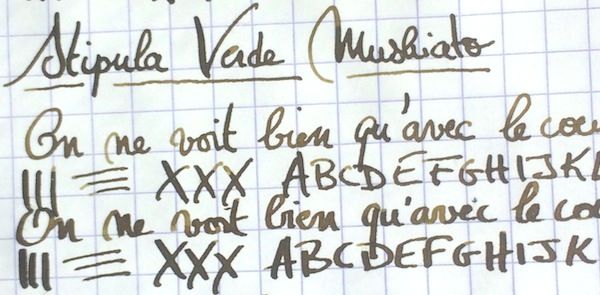 Stipula Verde Mushiato
On ne voit bien qu'avec le coeu
III XXX ABCDEFGHIJKL
On ne voit bien qu'avec le coe
III XXX ABCDEFGHIJK